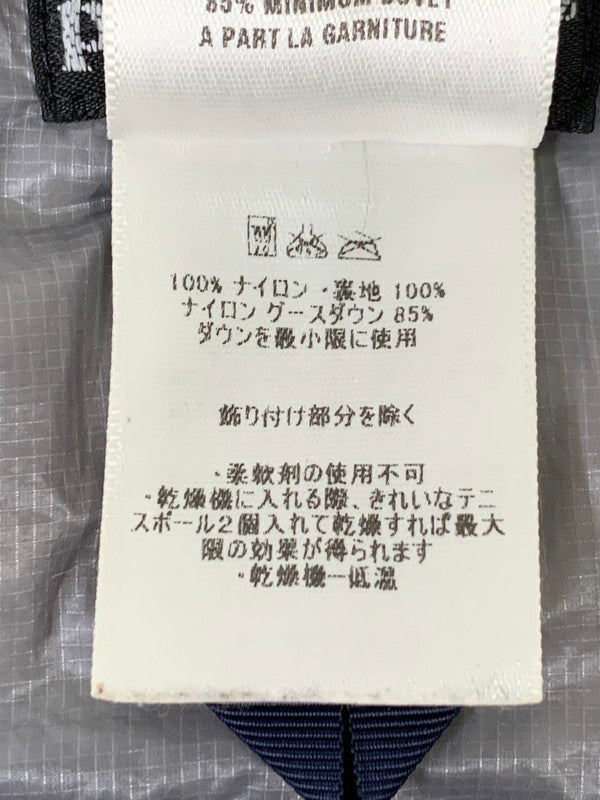 85% MINIMUM DUVET
A PART LA GARNITURE
100% ナイロン・裏地 100%
ナイロン グースダウン 85%
ダウンを最小限に使用
飾り付け部分を除く
・柔軟剤の使用不可
・乾燥機に入れる際、きれいなテニ
スボール2個入れて乾燥すれば最大
限の効果が得られます
・乾燥機ー低温